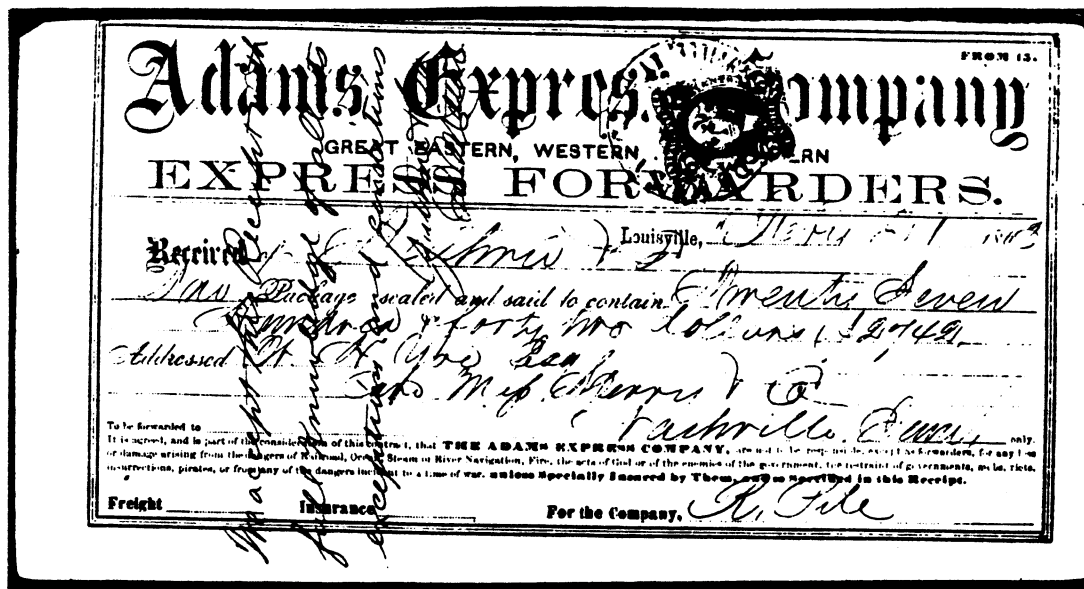 FROM 13.
Adams Express Company
GREAT EASTERN, WESTERN ERN
EXPRESS FORWARDERS.
Louisville,
Received
One Package sealed and said to contain Twenty Seven
Hundred & forty two dollars $2742
Addressed
Nashville Tenn
To be forwarded to only.
It is agreed, and is part of the consideration of this contract, that THE ADAMS EXPRESS COMPANY, are not to be responsible, except as forwarders, for any loss
or damage arising from the dangers of Railroad, Ocean, Steam or River Navigation, Fire, the acts of God or of the enemies of the government, the restraint of governments, mobs, riots,
insurrections, pirates, or from any of the dangers incident to a time of war, unless Specially Insured by Them, and so Specified in this Receipt.
Freight Insurance For the Company, R. Pile
I accept this Receipt with
full knowledge of all its
exceptions and conditions